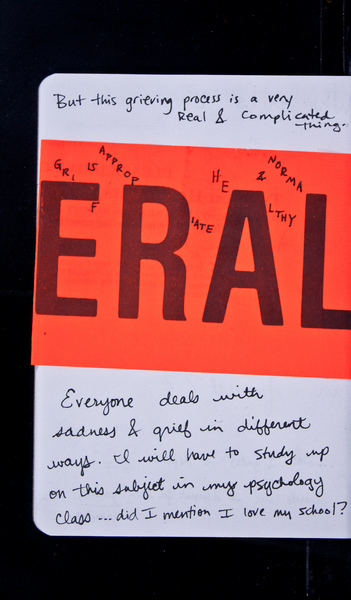 But this grieving process is a very
Real & Complicated
thing.
GRI IS APPROP HE & NORMA
F IATE LTHY
ERAL
Everyone deals with
sadness & grief in different
ways. I will have to study up
on this subject in my psychology
class ... did I mention I love my school?